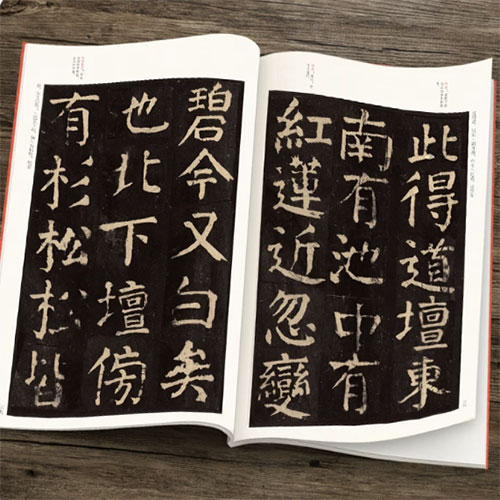 此得道壇東
南有池中有
紅蓮近忽變
碧今又白矣
也北下壇傍
有杉松松皆